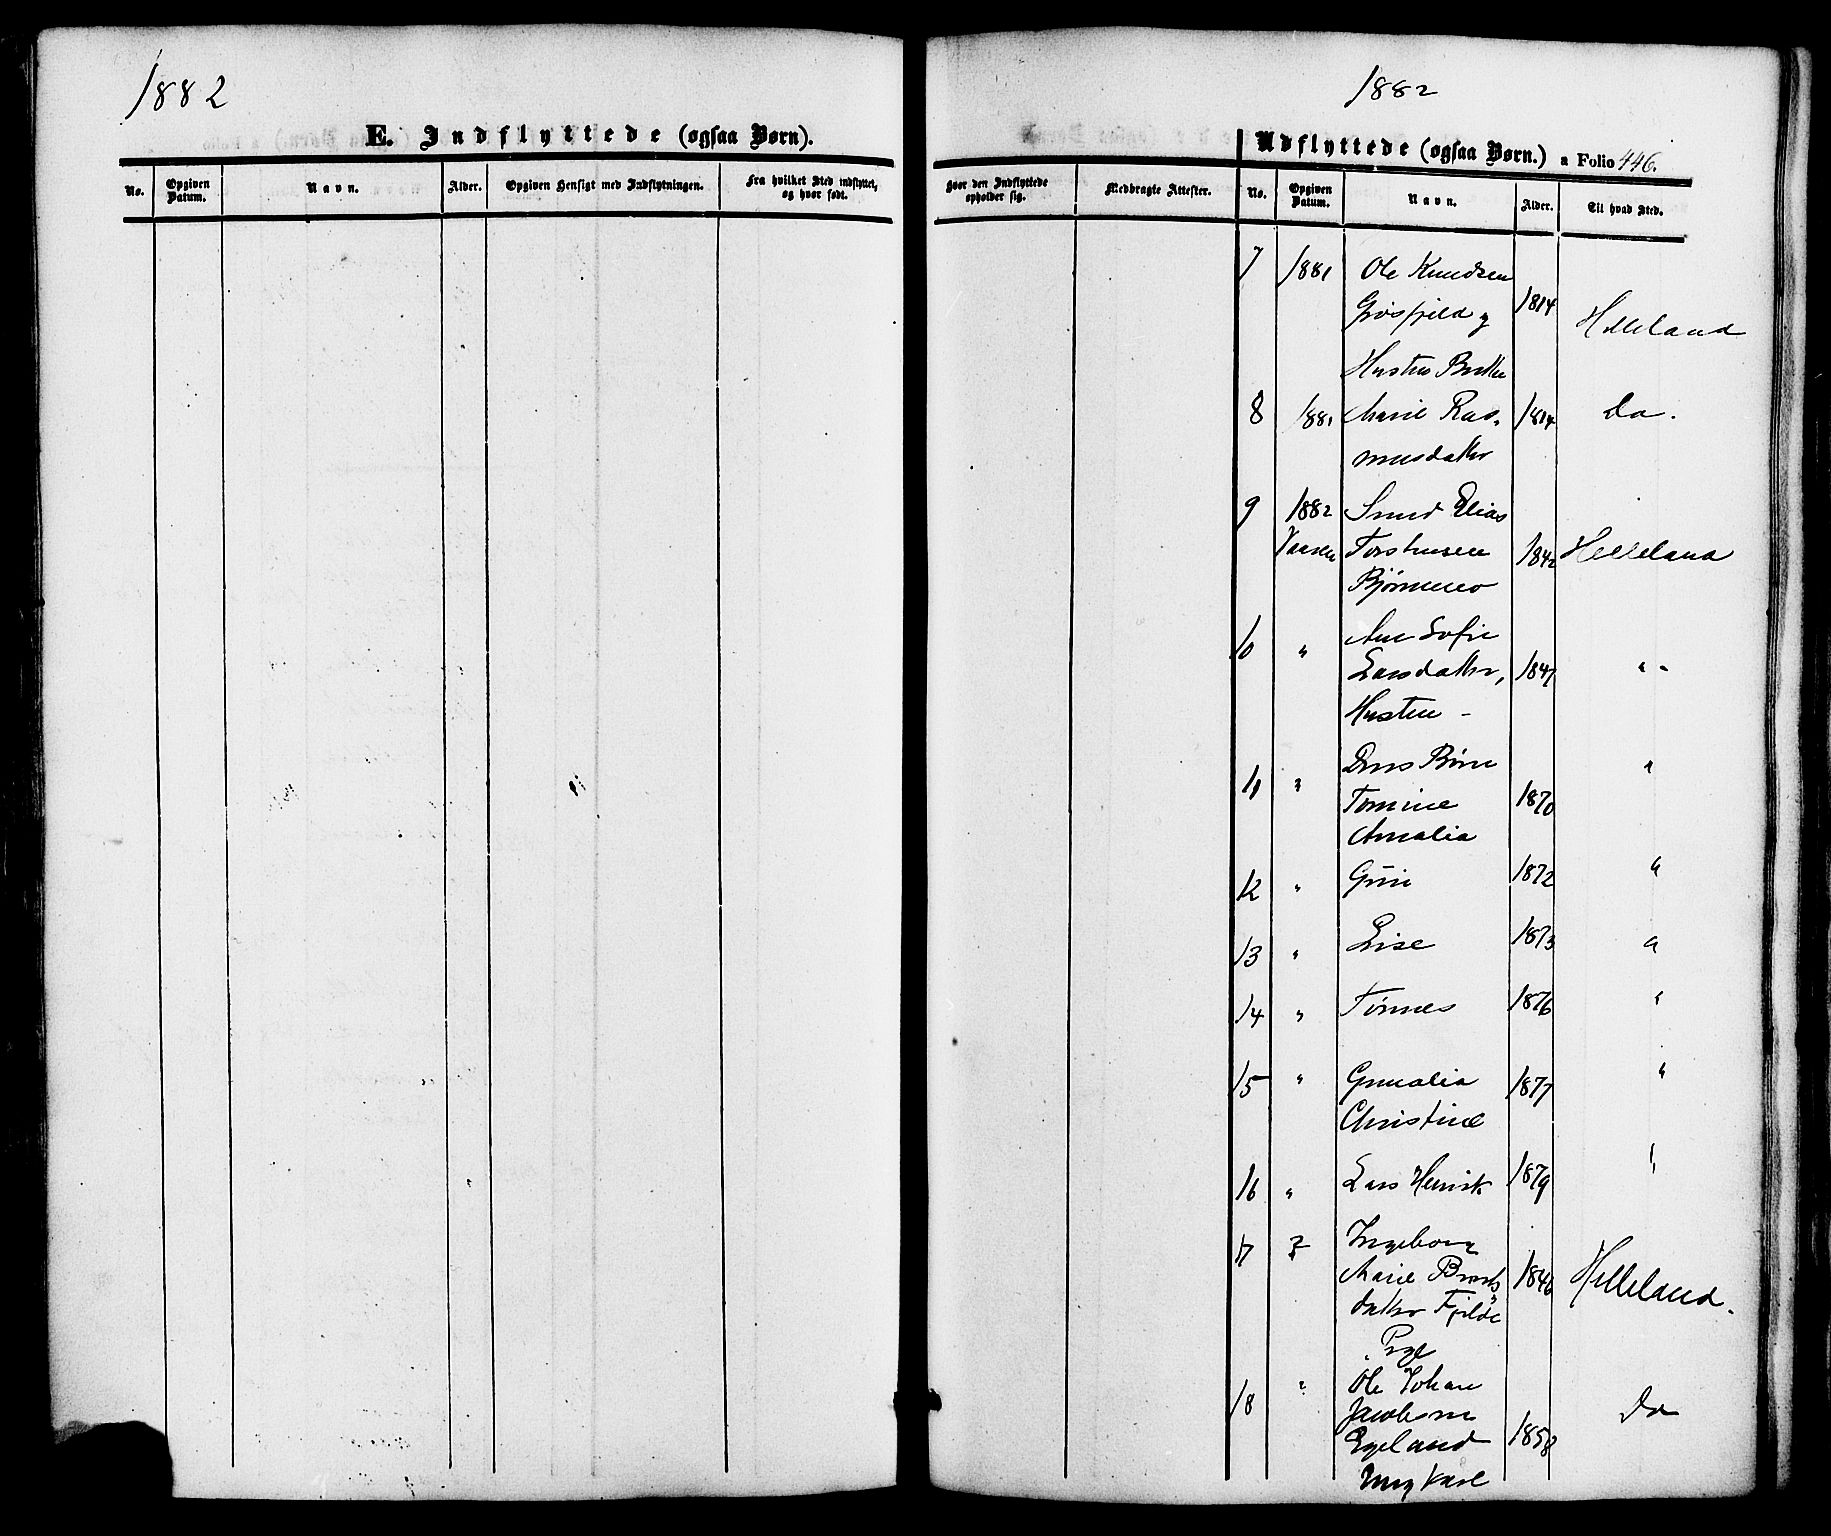 1882
E. Indflyttede (ogsaa Børn).
No.
Opgiven Datum.
Navn.
Alder.
Opgiven Hensigt med Indflytningen.
Fra hvilket Sted indflyttet, og hvor født.
1882
Udflyttede (ogsaa Børn.) a Folio 446.
Hvor den Indflyttede opholder sig.
Medbragte Attester.
No.
Opgiven Datum.
Navn.
Alder.
Til hvad Sted.
7 1881 Ole Knudsen
1814
Helleland
Hustru
8 1881 Marie Ras- 1814 Do.
musdatter
9 1882 Smed Elias
Vaaren 1842 Helleland
10 " Ane Sofie
Larsdatter, 1847 " -
Hustru -
Deres Børn "
11 " Tomine 1870
Amalia
12 " 1872 "
13 " Lise 1873 "
14 " Tønnes 1876 "
15 " Gunalia 1877 "
Christine
16 " Lars Henrik 1879 "
17 ? Ingeborg
Marie 1846 Helleland.
datter
Pige
18 " Ole Johan
Jacobsen Do
Egeland 1858
Ungkarl